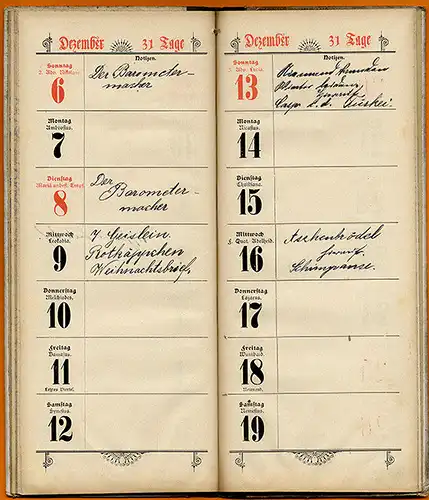 Dezember 31 Tage
Notizen.
Sonntag
2. Adv. Nikolaus
6
Der Barometer-
macher
Montag
Ambrosius.
7
Dienstag
Mariä undefl. Empf.
8
Der
Barometer-
macher
Mittwoch
Leokadia.
9
7 Geislein.
Rotkäppchen
Weihnachtsbrief,
Donnerstag
Melchiades.
10
Freitag
Damasus.
11
Letztes Viertel.
Samstag
Synesius.
12
Dezember 31 Tage
Notizen.
Sonntag
3. Adv. Lucia.
13
Casp
Montag
Nicasius.
14
Dienstag
Christiana.
15
Mittwoch
Quat. Adelheid.
16
Aschenbrödel
Schimpanse.
Donnerstag
Lazarus.
17
Freitag
Wunibald.
18
Neumond.
Samstag
Nemesius.
19